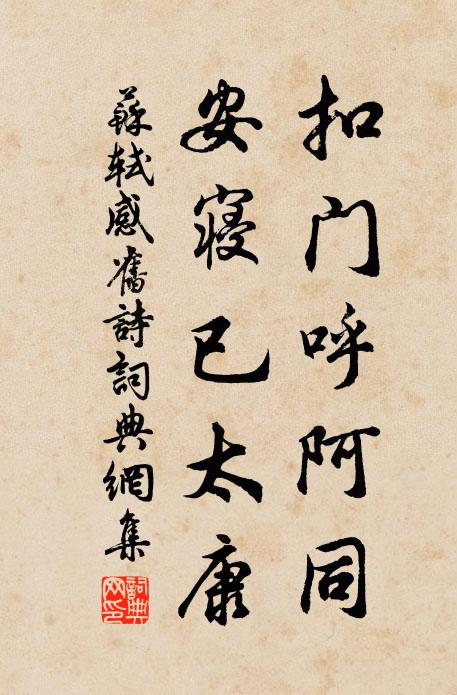 扣門呼阿同
安寢已太康
蘇軾感舊詩詞典網集
詞典網印